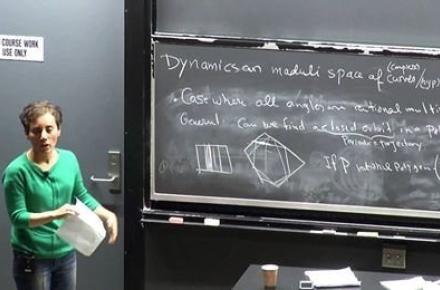 COURSE WORK
USE ONLY
Dynamics on moduli space of (complex)
curves/hyp
• Case where all angles are rational mult
General: Can we find a closed orbit in a p
Periodic trajectory
If P rational Polygon (